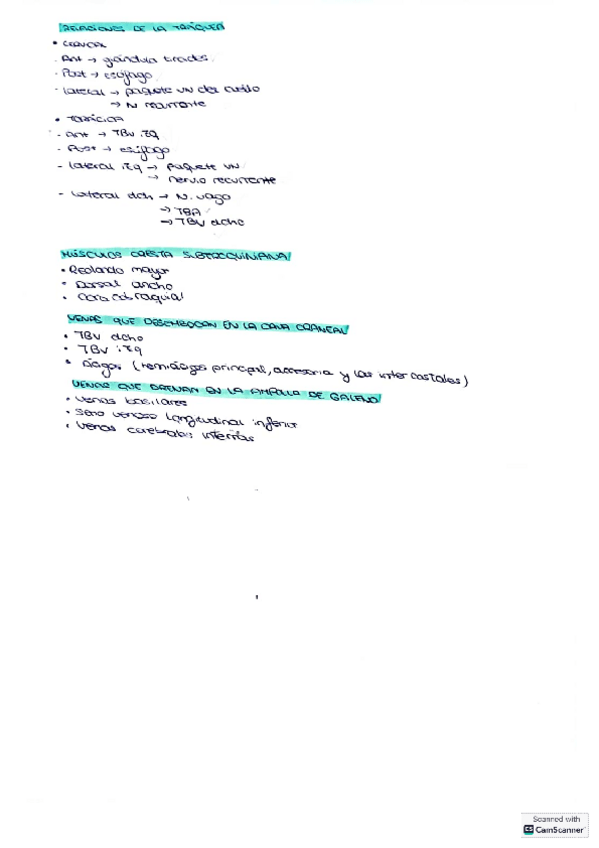 RELACIONES DE LA TRÁQUEA
• CERVICAL
- Ant → glándula tiroides
- Post → esófago
- lateral → paquete VN del cuello
→ N recurrente
• TORÁCICA
- Ant → TBV izq
- Post → esófago
- lateral izq → paquete VN
→ nervio recurrente
- lateral dch → N. vago
→ TBA
→ TBV dcho
MÚSCULOS CRESTA SUBTROQUINIANA
• Redondo mayor
• Dorsal ancho
• Coracobraquial
VENAS QUE DESEMBOCAN EN LA CAVA CRANEAL
• TBV dcho
• TBV izq
• ácigos (hemiácigos principal, accesoria y las intercostales)
VENAS QUE DRENAN EN LA AMPOLLA DE GALENO
• venas basilares
• seno venoso longitudinal inferior
• venas cerebrales internas
Scanned with
CS CamScanner